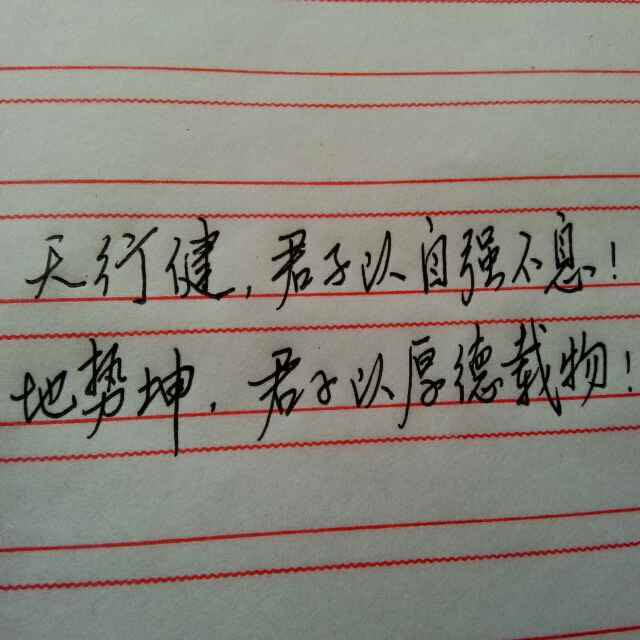 天行健，君子以自强不息！
地势坤，君子以厚德载物！